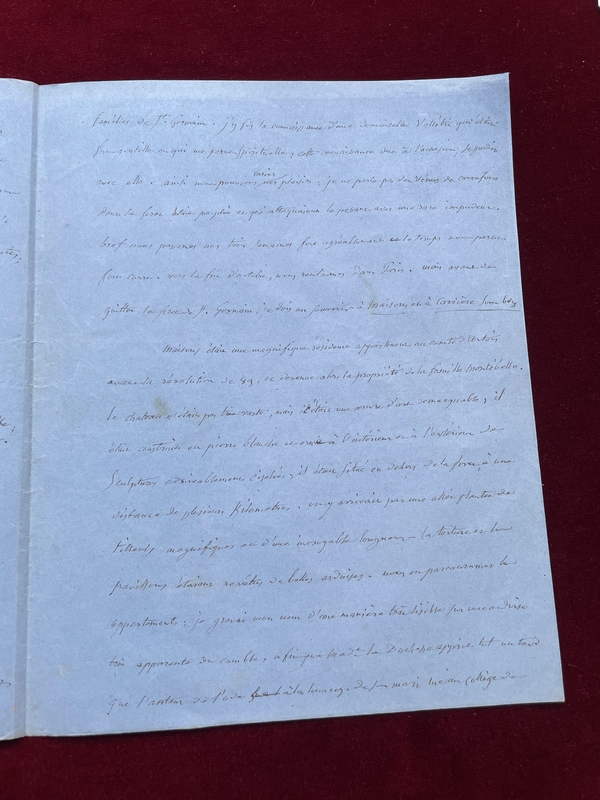 de St. Germain. j'y fis la connaissance d'une demoiselle qui était
fort gentille et qui me parut spirituelle; cette connaissance due à l'occasion, se perdit
avec elle. ainsi nos plaisirs; je ne parle pas des Vénus de carrefour
dont la foret était peuplée et qui attaquaient le passant avec une rare impudeur.
bref nous passames nos trois semaines fort agréablement et le temps nous parut
fort court. vers la fin d'octobre, nous rentrames dans Paris. mais avant de
quitter la foret de St. Germain, je dois un souvenir à Maisons et à Carrière sous bois
Maisons était une magnifique résidence appartenant au comte d'artois
avant la révolution de 89, et devenue alors la propriété de la famille montébello.
le chateau n'était pas très vaste, mais c'était une œuvre d'art remarquable; il
était construit en pierre blanche et orné à l'intérieur et à l'extérieur de
Sculptures admirablement ciselées; il était situé en dehors de la foret, à une
distance de plusieurs Kilomètres. on y arrivait par une allée plantée de
tilleuls magnifiques et d'une incroyable longueur. la toiture et les
pavillons étaient revêtus de belles ardoises. nous en parcourumes les
appartements; je gravai mon nom d'une manière très lisible sur une ardoise
très apparente du comble, afin que Made. la Duchesse apprit tot ou tard
que l'auteur de l'ode à la louange de son mari, lue au collège de